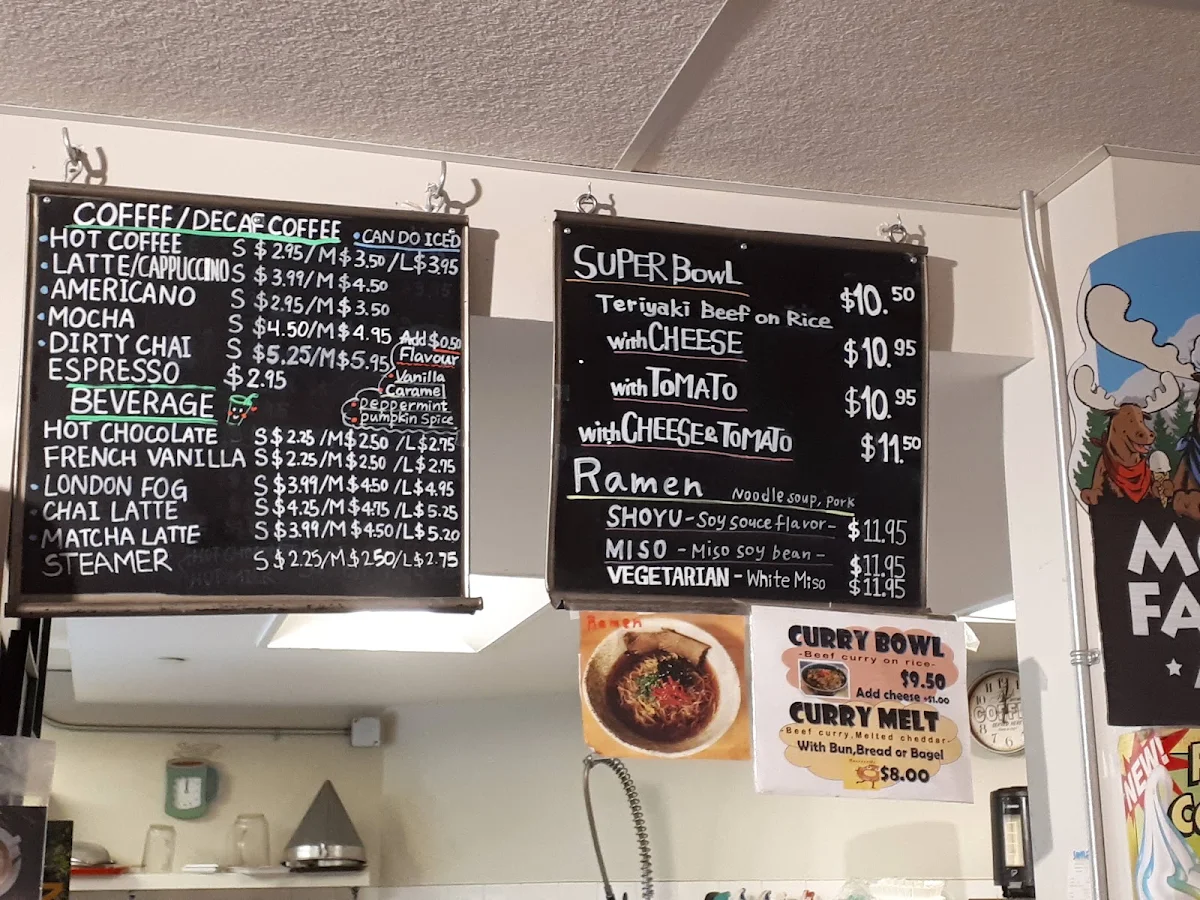 COFFEE/DECAF COFFEE
• CAN DO ICED
• HOT COFFEE S $2.95/M $3.50/L $3.95
• LATTE/CAPPUCCINO S $3.99/M $4.50
• AMERICANO S $2.95/M $3.50
• MOCHA S $4.50/M $4.95
• DIRTY CHAI S $5.25/M $5.95
ESPRESSO $2.95
Add $0.50
Flavour
Vanilla
Caramel
Peppermint
Pumpkin Spice
BEVERAGE
HOT CHOCOLATE S $2.25/M $2.50/L $2.75
FRENCH VANILLA S $2.25/M $2.50/L $2.75
• LONDON FOG S $3.99/M $4.50/L $4.95
• CHAI LATTE S $4.25/M $4.75/L $5.25
• MATCHA LATTE S $3.99/M $4.50/L $5.20
STEAMER S $2.25/M $2.50/L $2.75
SUPER BOWL
Teriyaki Beef on Rice $10.50
with CHEESE $10.95
with TOMATO $10.95
with CHEESE & TOMATO $11.50
Ramen Noodle soup, pork
SHOYU - Soy souce flavor - $11.95
MISO - Miso soy bean - $11.95
VEGETARIAN - White Miso $11.95
Ramen
CURRY BOWL
-Beef curry on rice-
$9.50
Add cheese +$1.00
CURRY MELT
-Beef curry, Melted cheddar-
With Bun, Bread or Bagel
$8.00
COFFEE
NEW!